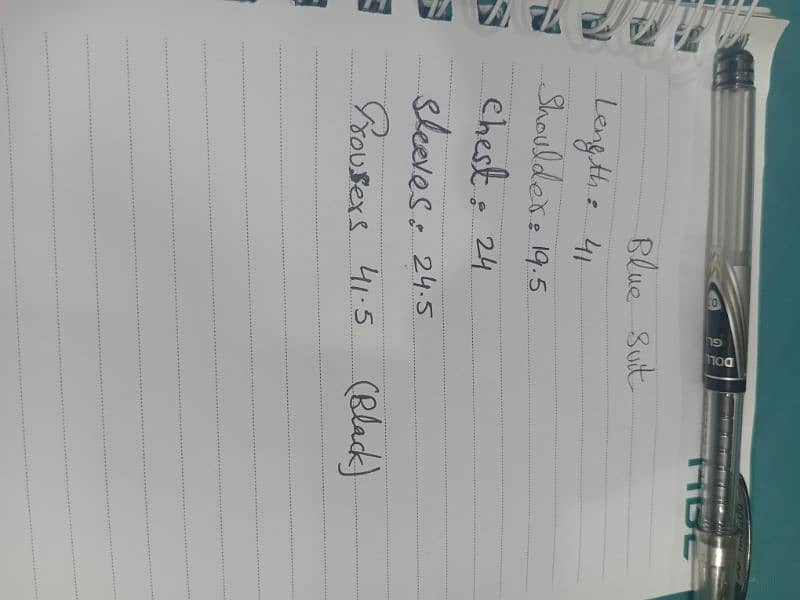 Blue Suit
Length: 41
Shoulder: 19.5
Chest: 24
Sleeves: 24.5
Trousers 41.5 (Black)